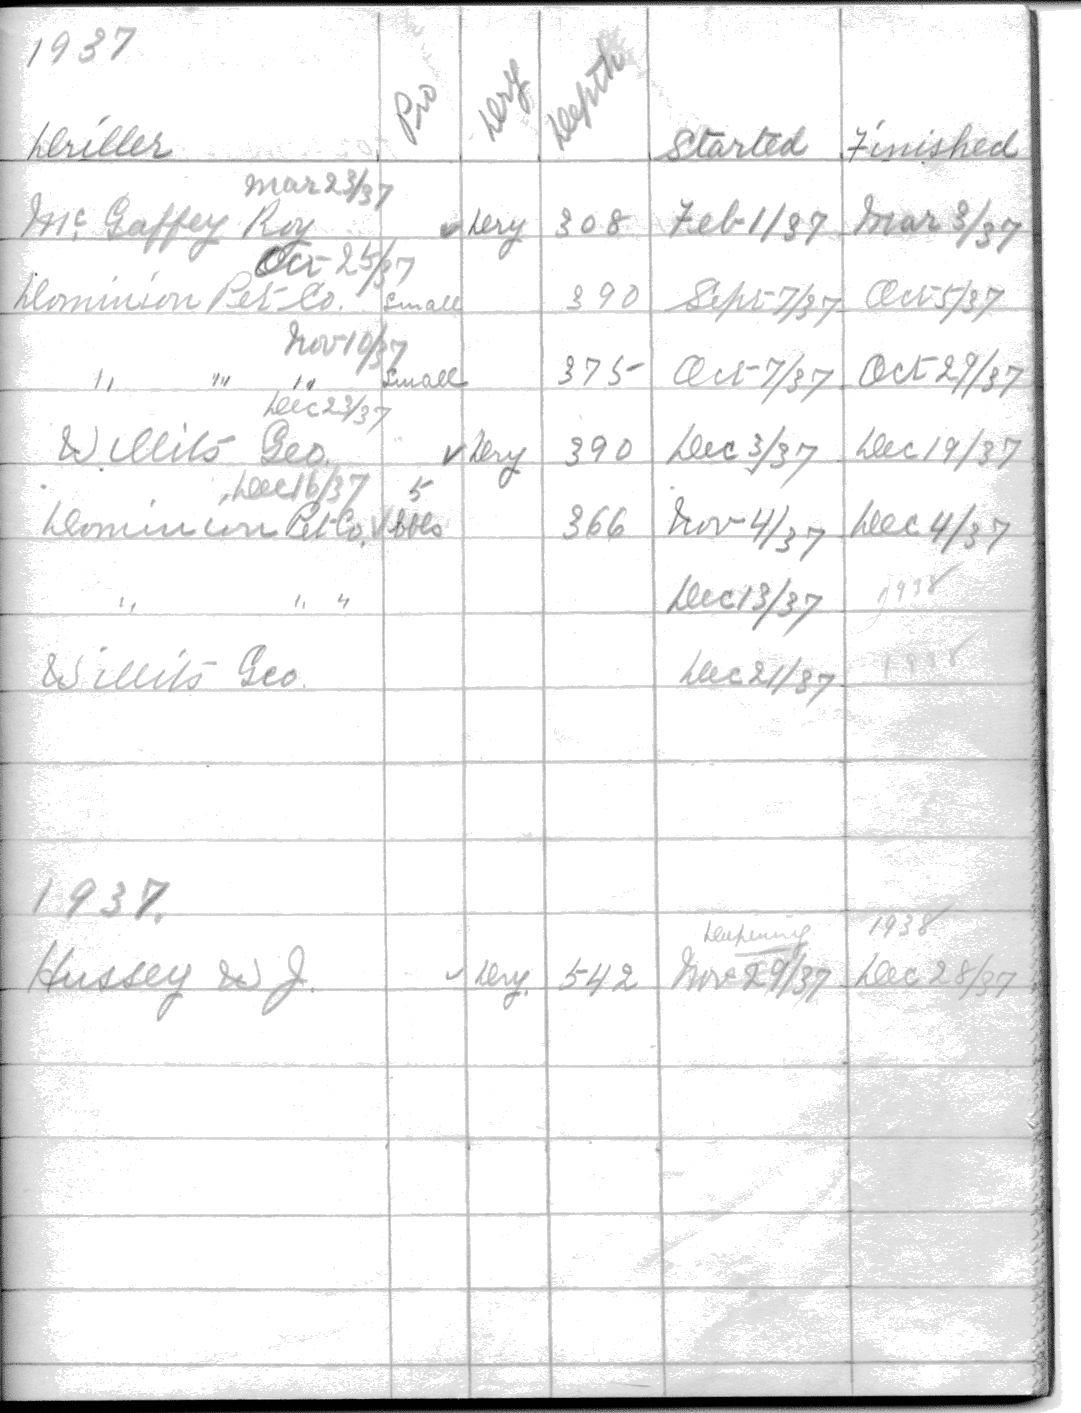 1937
Driller Pro Dry Depth Started Finished
Mar 23/37
Mc Gaffey Roy ✓ Dry 308 Feb 1/37 Mar 3/37
Oct 25/37
Dominion Pet Co. Small 390 Sept 7/37 Oct 5/37
Nov 10/37
" " " Small 375 Oct 7/37 Oct 29/37
Dec 23/37
Willits Geo. ✓ Dry 390 Dec 3/37 Dec 19/37
Dec 16/37 5
Dominion Pet Co. ✓ bbls 366 Nov 4/37 Dec 4/37
" " " Dec 13/37 1938
Willits Geo. Dec 21/37 1938
1937.
Deepening 1938
Hussey W J. ✓ Dry. 542 Nov 29/37 Dec 28/37